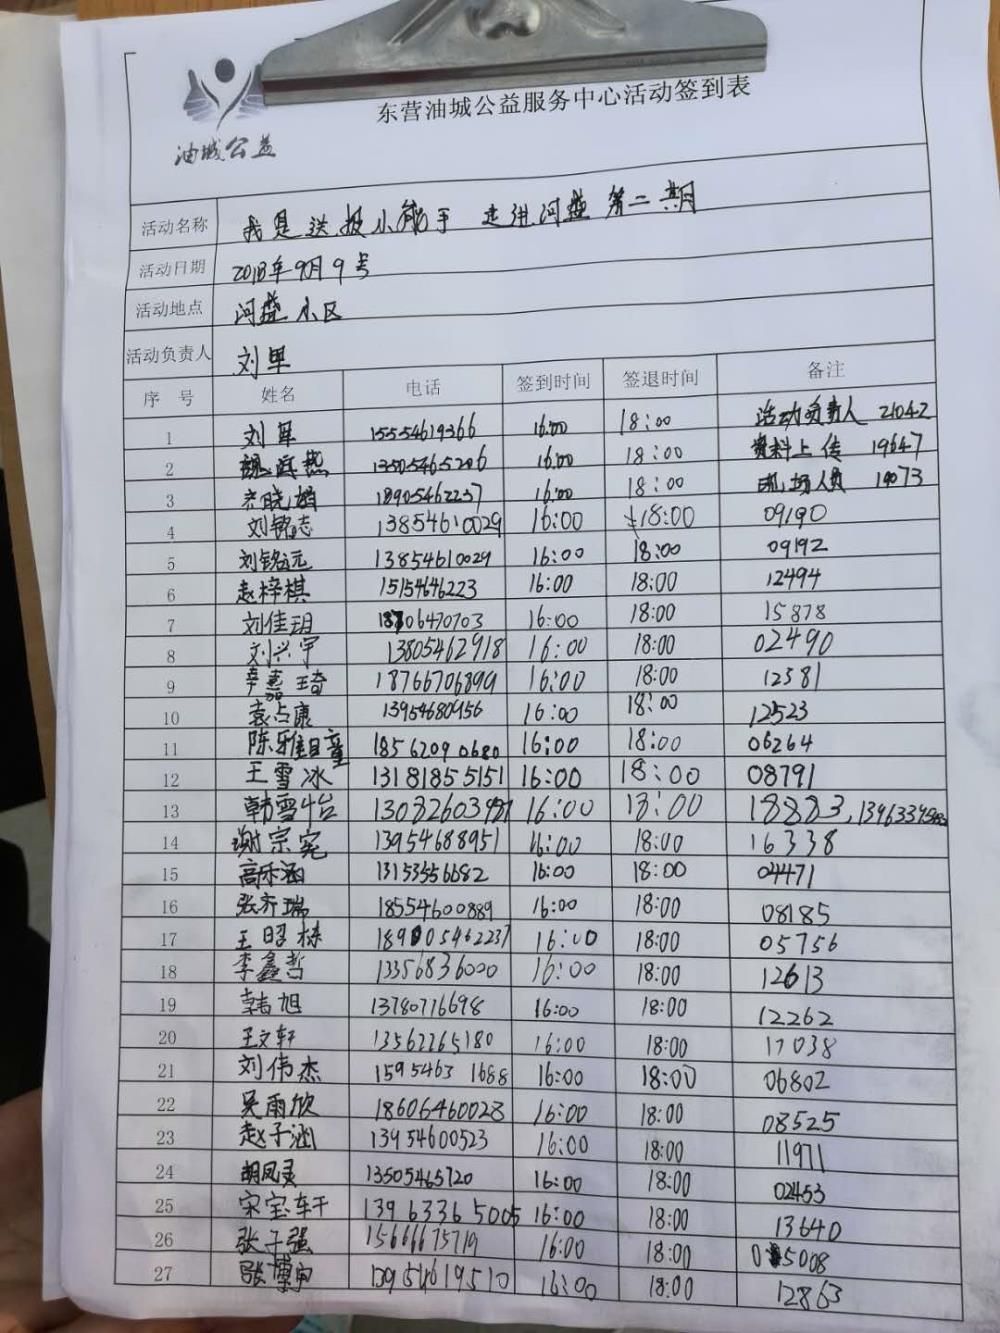 东营油城公益服务中心活动签到表
油城公益
活动名称 我是送报小能手 走进河盛 第二期
活动日期 2018年9月9号
活动地点 河盛小区
活动负责人 刘军
序 号 姓名 电话 签到时间 签退时间 备注
1 刘军 15554619366 16:00 18:00 活动负责人 21042
2 13505465206 16:00 18:00 资料上传 19647
3 18905462237 16:00 18:00 现场人员 19073
4 刘铭志 13854610029 16:00 18:00 09190
5 刘铭远 13854610029 16:00 18:00 09192
6 赵梓棋 15154646223 16:00 18:00 12494
7 刘佳玥 18706470703 16:00 18:00 15878
8 刘兴宇 13805462918 16:00 18:00 02490
9 辛嘉琦 18766706899 16:00 18:00 12581
10 袁占康 13954680956 16:00 18:00 12523
11 陈雅瞳 18562090680 16:00 18:00 06264
12 王雪冰 13181855151 16:00 18:00 08791
13 韩雪怡 16:00 18:00 18883,
14 谢宗宪 13954688951 16:00 18:00 16338
15 高乐涵 13153556682 16:00 18:00 04471
16 张齐瑞 18554600889 16:00 18:00 08185
17 王昭栋 18905462237 16:00 18:00 05756
18 李鑫哲 13356836000 16:00 18:00 12613
19 韩旭 13780776698 16:00 18:00 12262
20 王文轩 13562265180 16:00 18:00 17038
21 刘伟杰 1595463 1688 16:00 18:00 06802
22 吴雨欣 18606460028 16:00 18:00 08525
23 赵子涵 13954600523 16:00 18:00 11971
24 胡凤灵 13505465720 16:00 18:00 02453
25 宋宝轩 13963365005 16:00 18:00 13640
26 张子强 15666675719 16:00 18:00 05008
27 张博 13954619510 16:00 18:00 12863